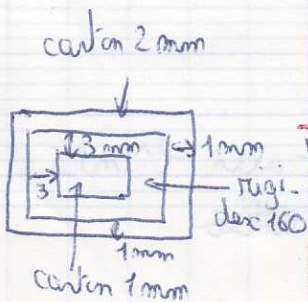 carton 2 mm
3 mm
1 mm
3
rigi-
dex 160
1 mm
carton 1 mm